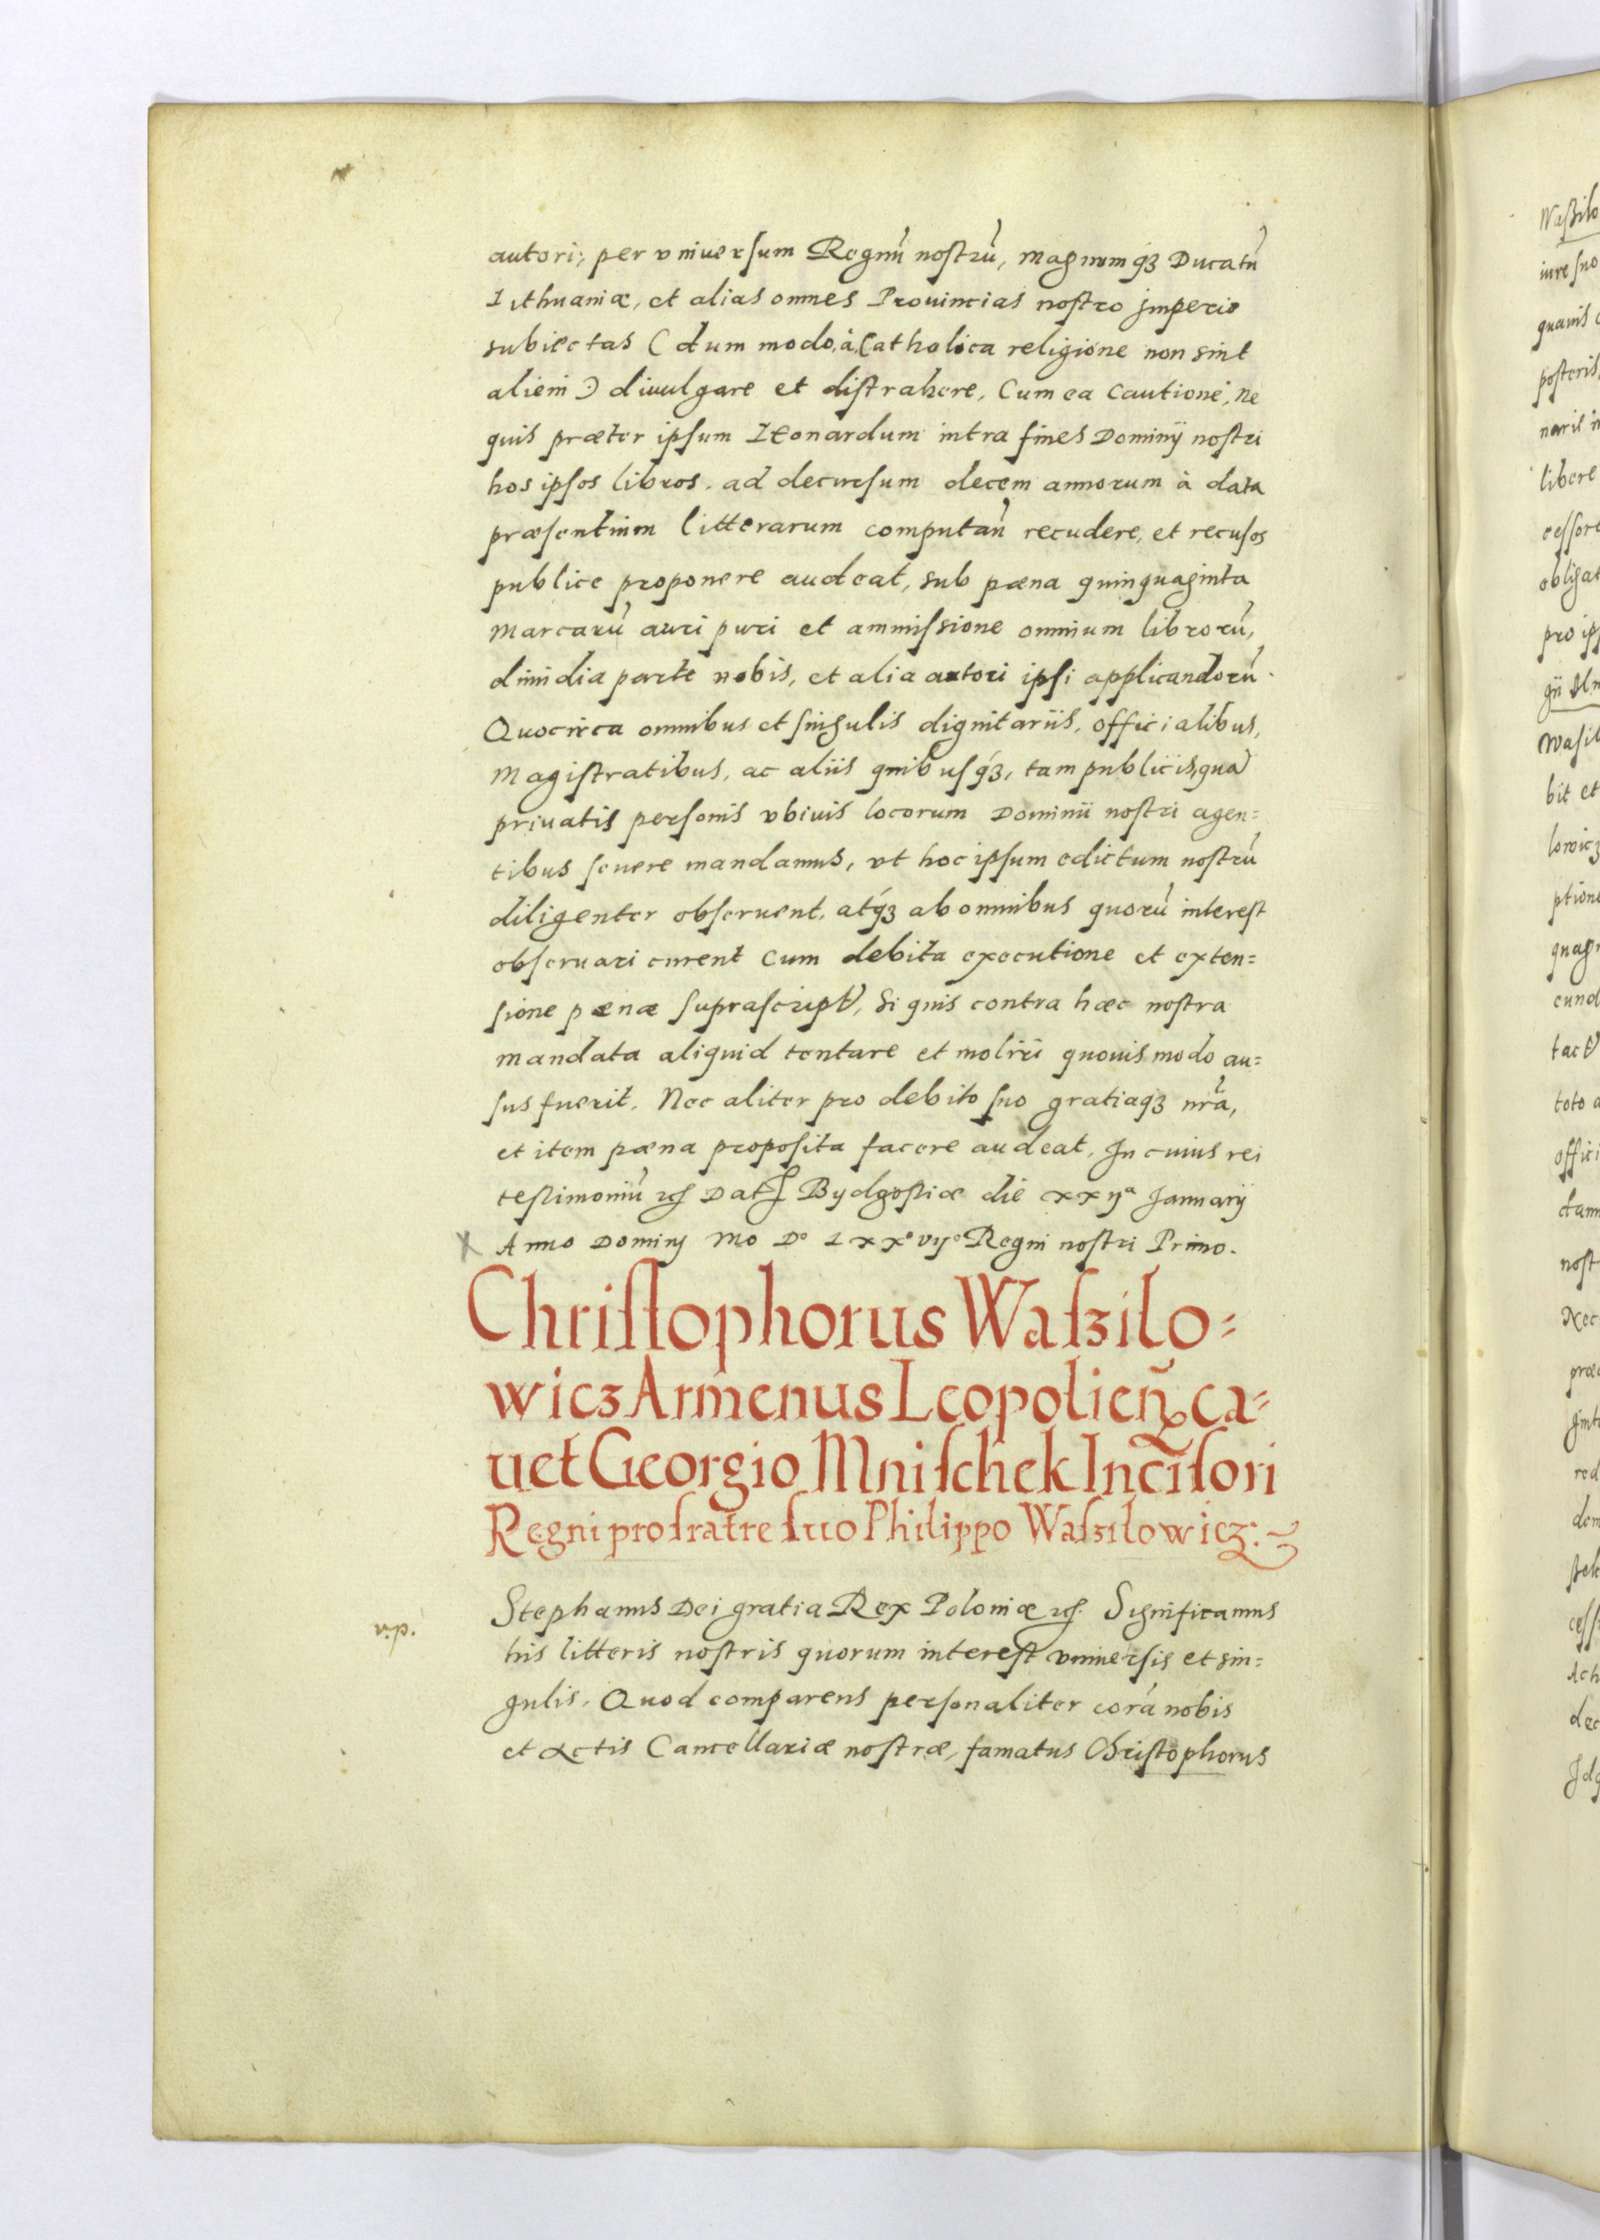 autori, per vniuersum Regnũ nostrũ, magnumq́ꝫ Ducatũ
Lithuaniæ, et alias omnes Prouincias nostro imperio
subiectas (dum modo, à, Catholica religione non sint
alieni) diuulgare et distrahere, Cum ea Cautione, ne
quis præter ipsum Leonardum intra fines Dominÿ nostri
hos ipsos libros, ad decursum decem annorum à data
præsentium litterarum computañ recudere, et recusos
publice proponere audeat, sub pæna quinquaginta
Marcarũ auri puri et ammissione omnium librorũ,
dimidia parte nobis, et alia autori ipsi applicandorũ.
Quocirca omnibus et singulis dignitariis, officialibus,
Magistratibus, ac aliis quibusq́ꝫ, tam publicis, quã
priuatis personis vbiuis locorum Dominii nostri agen=
tibus seuere mandamus, vt hoc ipsum edictum nostrũ
diligenter obseruent, atq́ꝫ ab omnibus quorũ interest
obseruari curent cum debita executione et exten=
sione pænæ suprascript, si quis contra hæc nostra
mandata aliquid tentare et moliri quouis modo au=
sus fuerit. Nec aliter pro debito suo gratiaqꝫ nrã,
et item pæna proposita facere audeat. In cuius rei
testimoniũ ꝛc̃ Dat Bydgostiæ die xxijª Januarÿ
X Anno Dominj Mo Dº Lxxº vijº Regni nostri Primo.
Christophorus Waſzilo=
wicz Armenus Leopolieñ, ca=
uet Georgio Mnischek Incisori
Regni pro fratre suo Philippo Waſzilowicz.
Stephanus Dei gratia Rex Poloniæ ꝛc̃. Significamus
his litteris nostris quorum interest vniuersis et sin=
gulis. Quod comparens personaliter corã nobis
et Actis Cancellariæ nostræ, famatus Christophorus